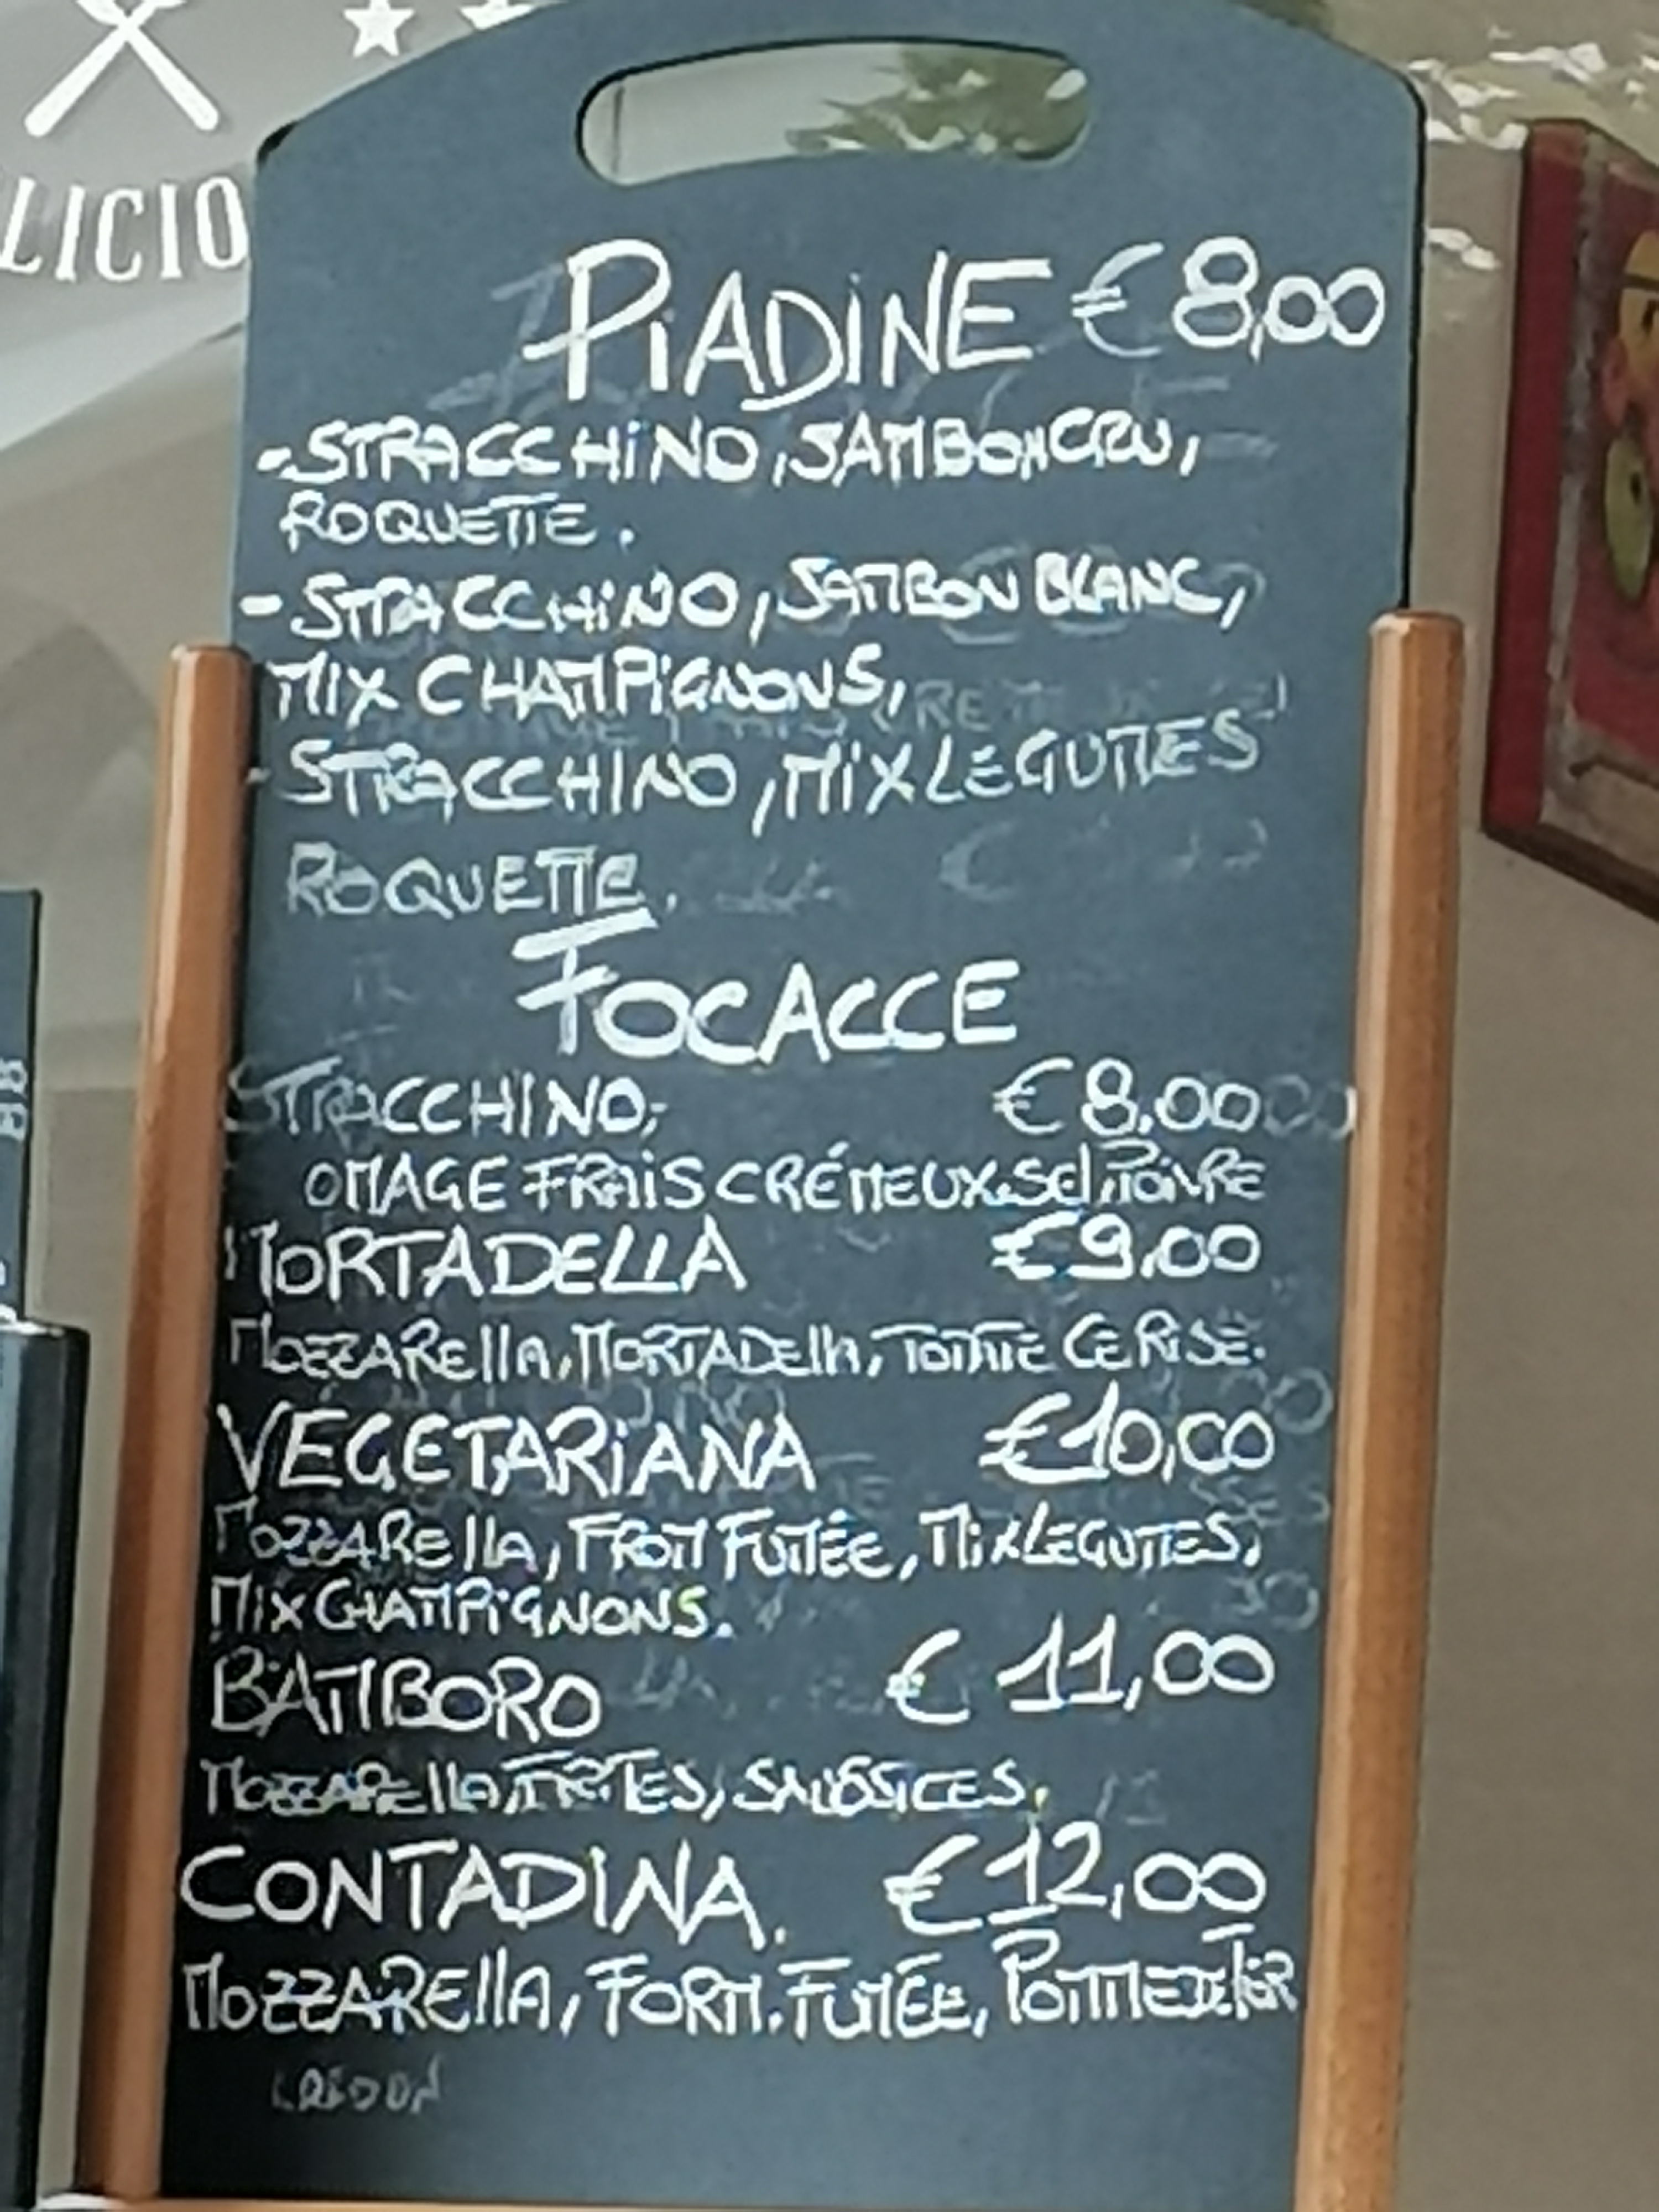 LICIO
PiADiNE € 8,00
-STRACCHiNO, JAMBON CRU,
ROQUETTE.
- STRACCHiNO, JAMBON BLANC,
MIX CHAMPiGNONS,
- STRACCHINO, MiX LEGUMES
ROQUETTE.
FOCACCE
STRACCHINO; € 8.00
OMAGE FRAiS CRÉMEUX. Sel, POiVRE
MORTADELLA € 9.00
MOZZARella, MORTADElla, TOMTE CERiSE.
VEGETARiANA €10,00
MOZZARella, FROM FUMÉE, MiX LEGUMES,
MiX CHAMPiGNONS.
BAMBORO € 11,00
MOZZARElla, FRITES, SAUSSICES.
CONTADINA. € 12,00
MOZZARElla, FORM. FUMÉE, POMME DE TER